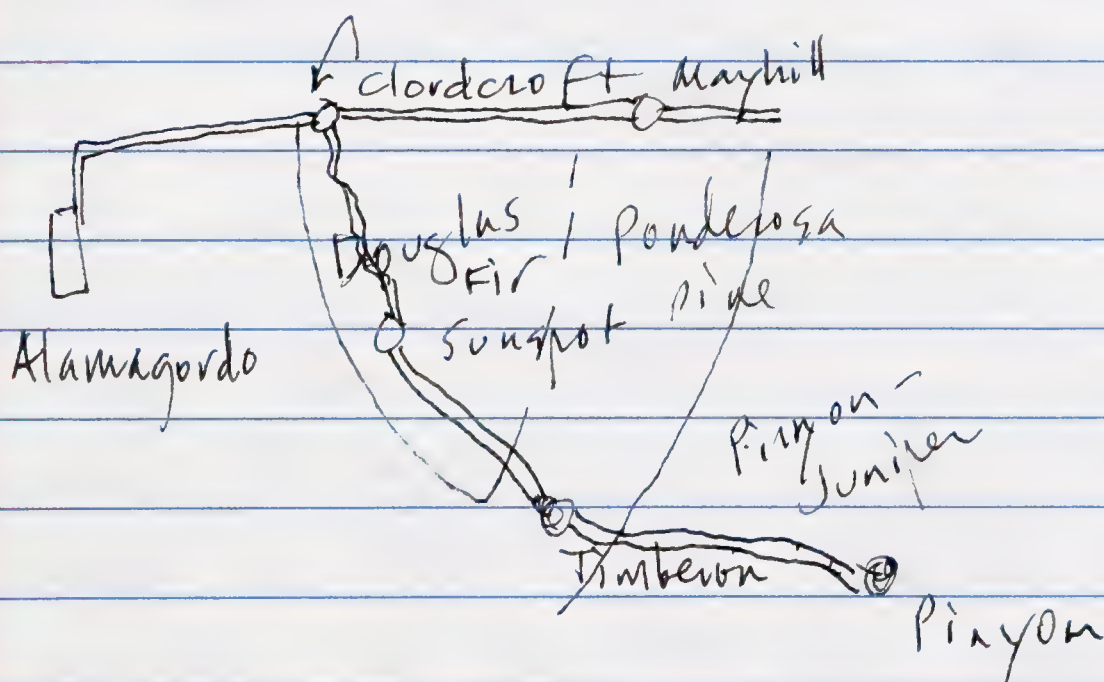 Clordcroft Mayhill
Douglas
Fir
Ponderosa
pine
Sunspot
Alamagordo
Pinyon-
Juniper
Timberon
Pinyon